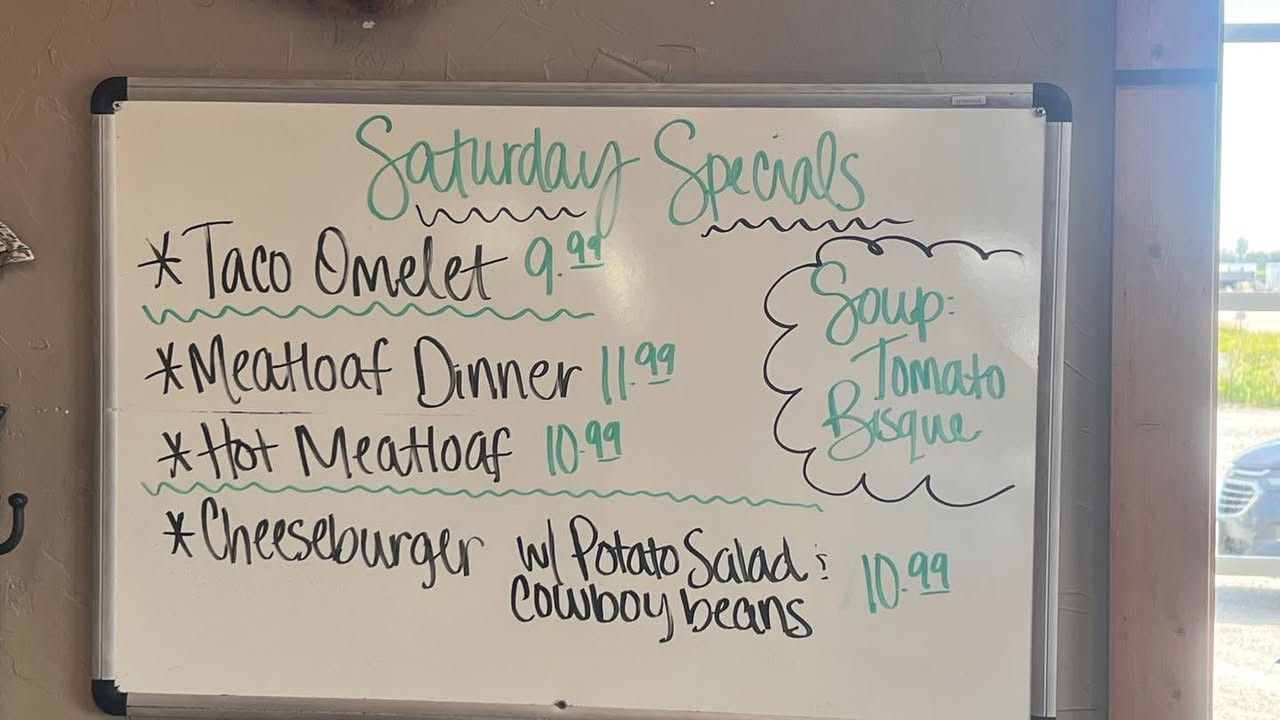 Saturday Specials
* Taco Omelet 9.99
* Meatloaf Dinner 11.99
* Hot Meatloaf 10.99
* Cheeseburger w/ Potato Salad :
cowboy beans 10.99
Soup:
Tomato
Bisque